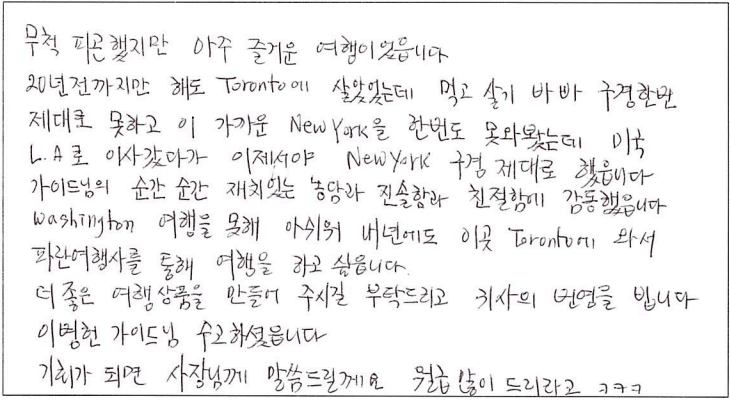 무척 피곤했지만 아주 즐거운 여행이었읍니다
20년전까지만 해도 Toronto에 살았었는데 먹고 살기 바빠 구경한번
제대로 못하고 이 가까운 New York을 한번도 못와봤는데 미국
L.A로 이사갔다가 이제서야 New York 구경 제대로 했읍니다
가이드님의 순간 순간 재치있는 농담과 진솔함과 친절함에 감동했읍니다
Washington 여행을 못해 아쉬워 내년에도 이곳 Toronto에 와서
파란여행사를 통해 여행을 하고 싶읍니다.
더 좋은 여행상품을 만들어 주시길 부탁드리고 귀사의 번영을 빕니다
이병헌 가이드님 수고하셨읍니다
기회가 되면 사장님께 말씀드릴께요 월급 많이 드리라고 ㅋㅋㅋ